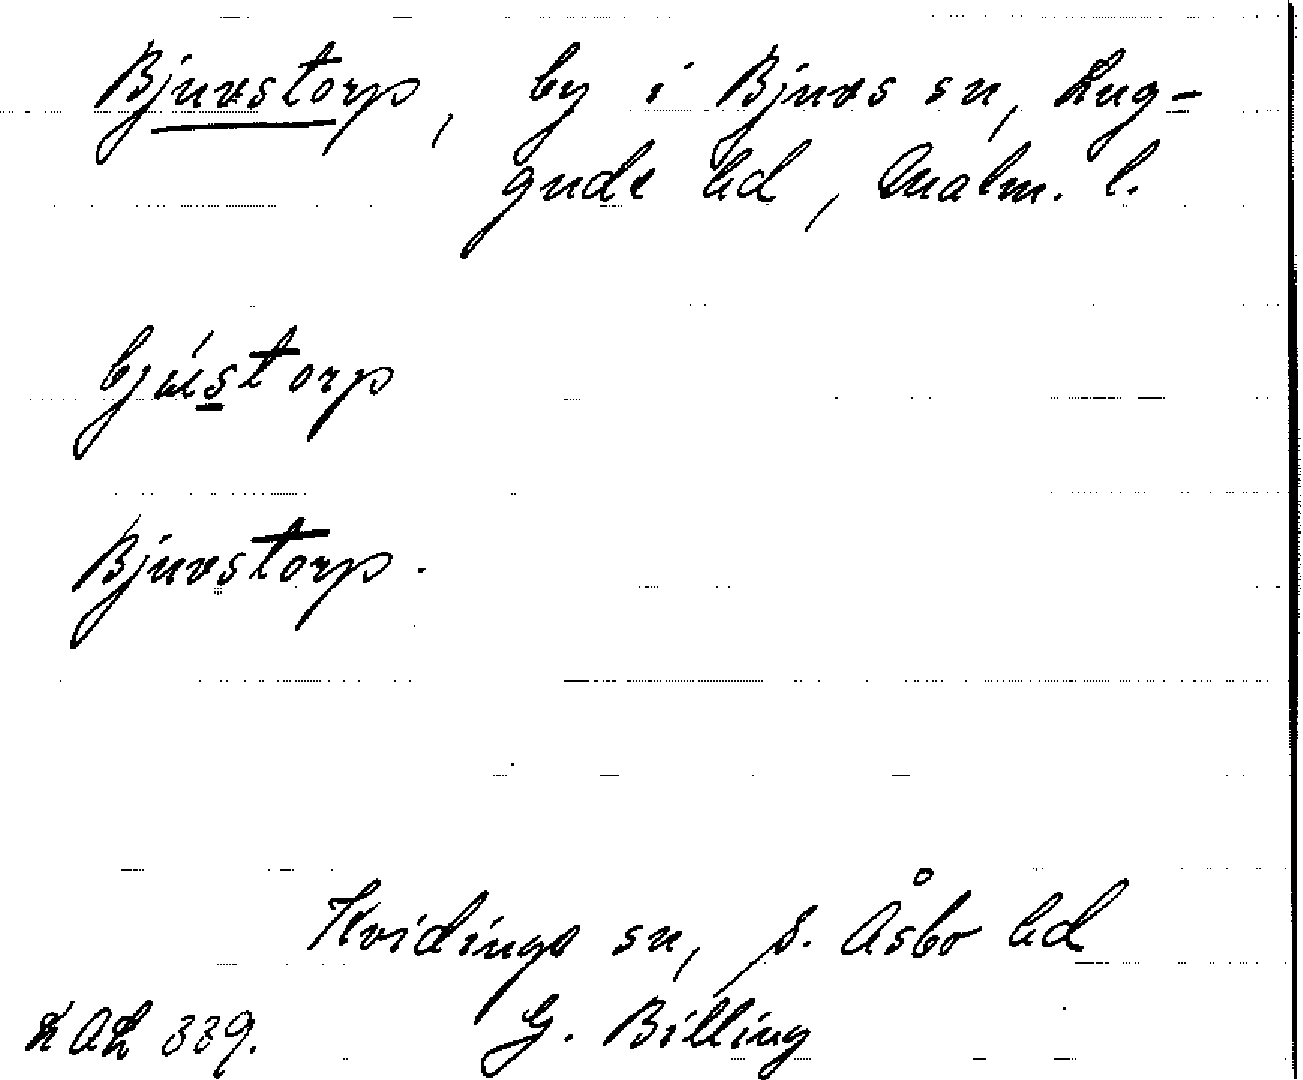 Bjuvstorp, by i Bjuvs sn, Lug-
gude hd, Malm. l.
bjústorp
Bjuvstorp.
Kvidinge sn, S. Åsbo hd
LAL 339. G. Billing